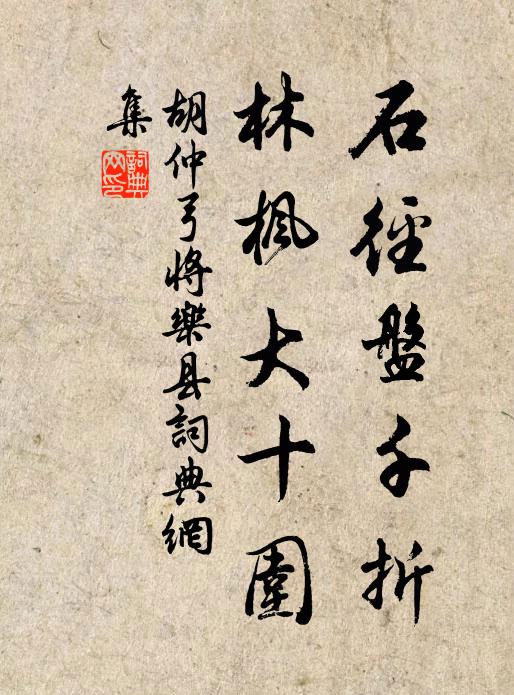 石徑盤千折
林楓大十圍
胡仲弓將樂县詞典網
集
詞典
网印